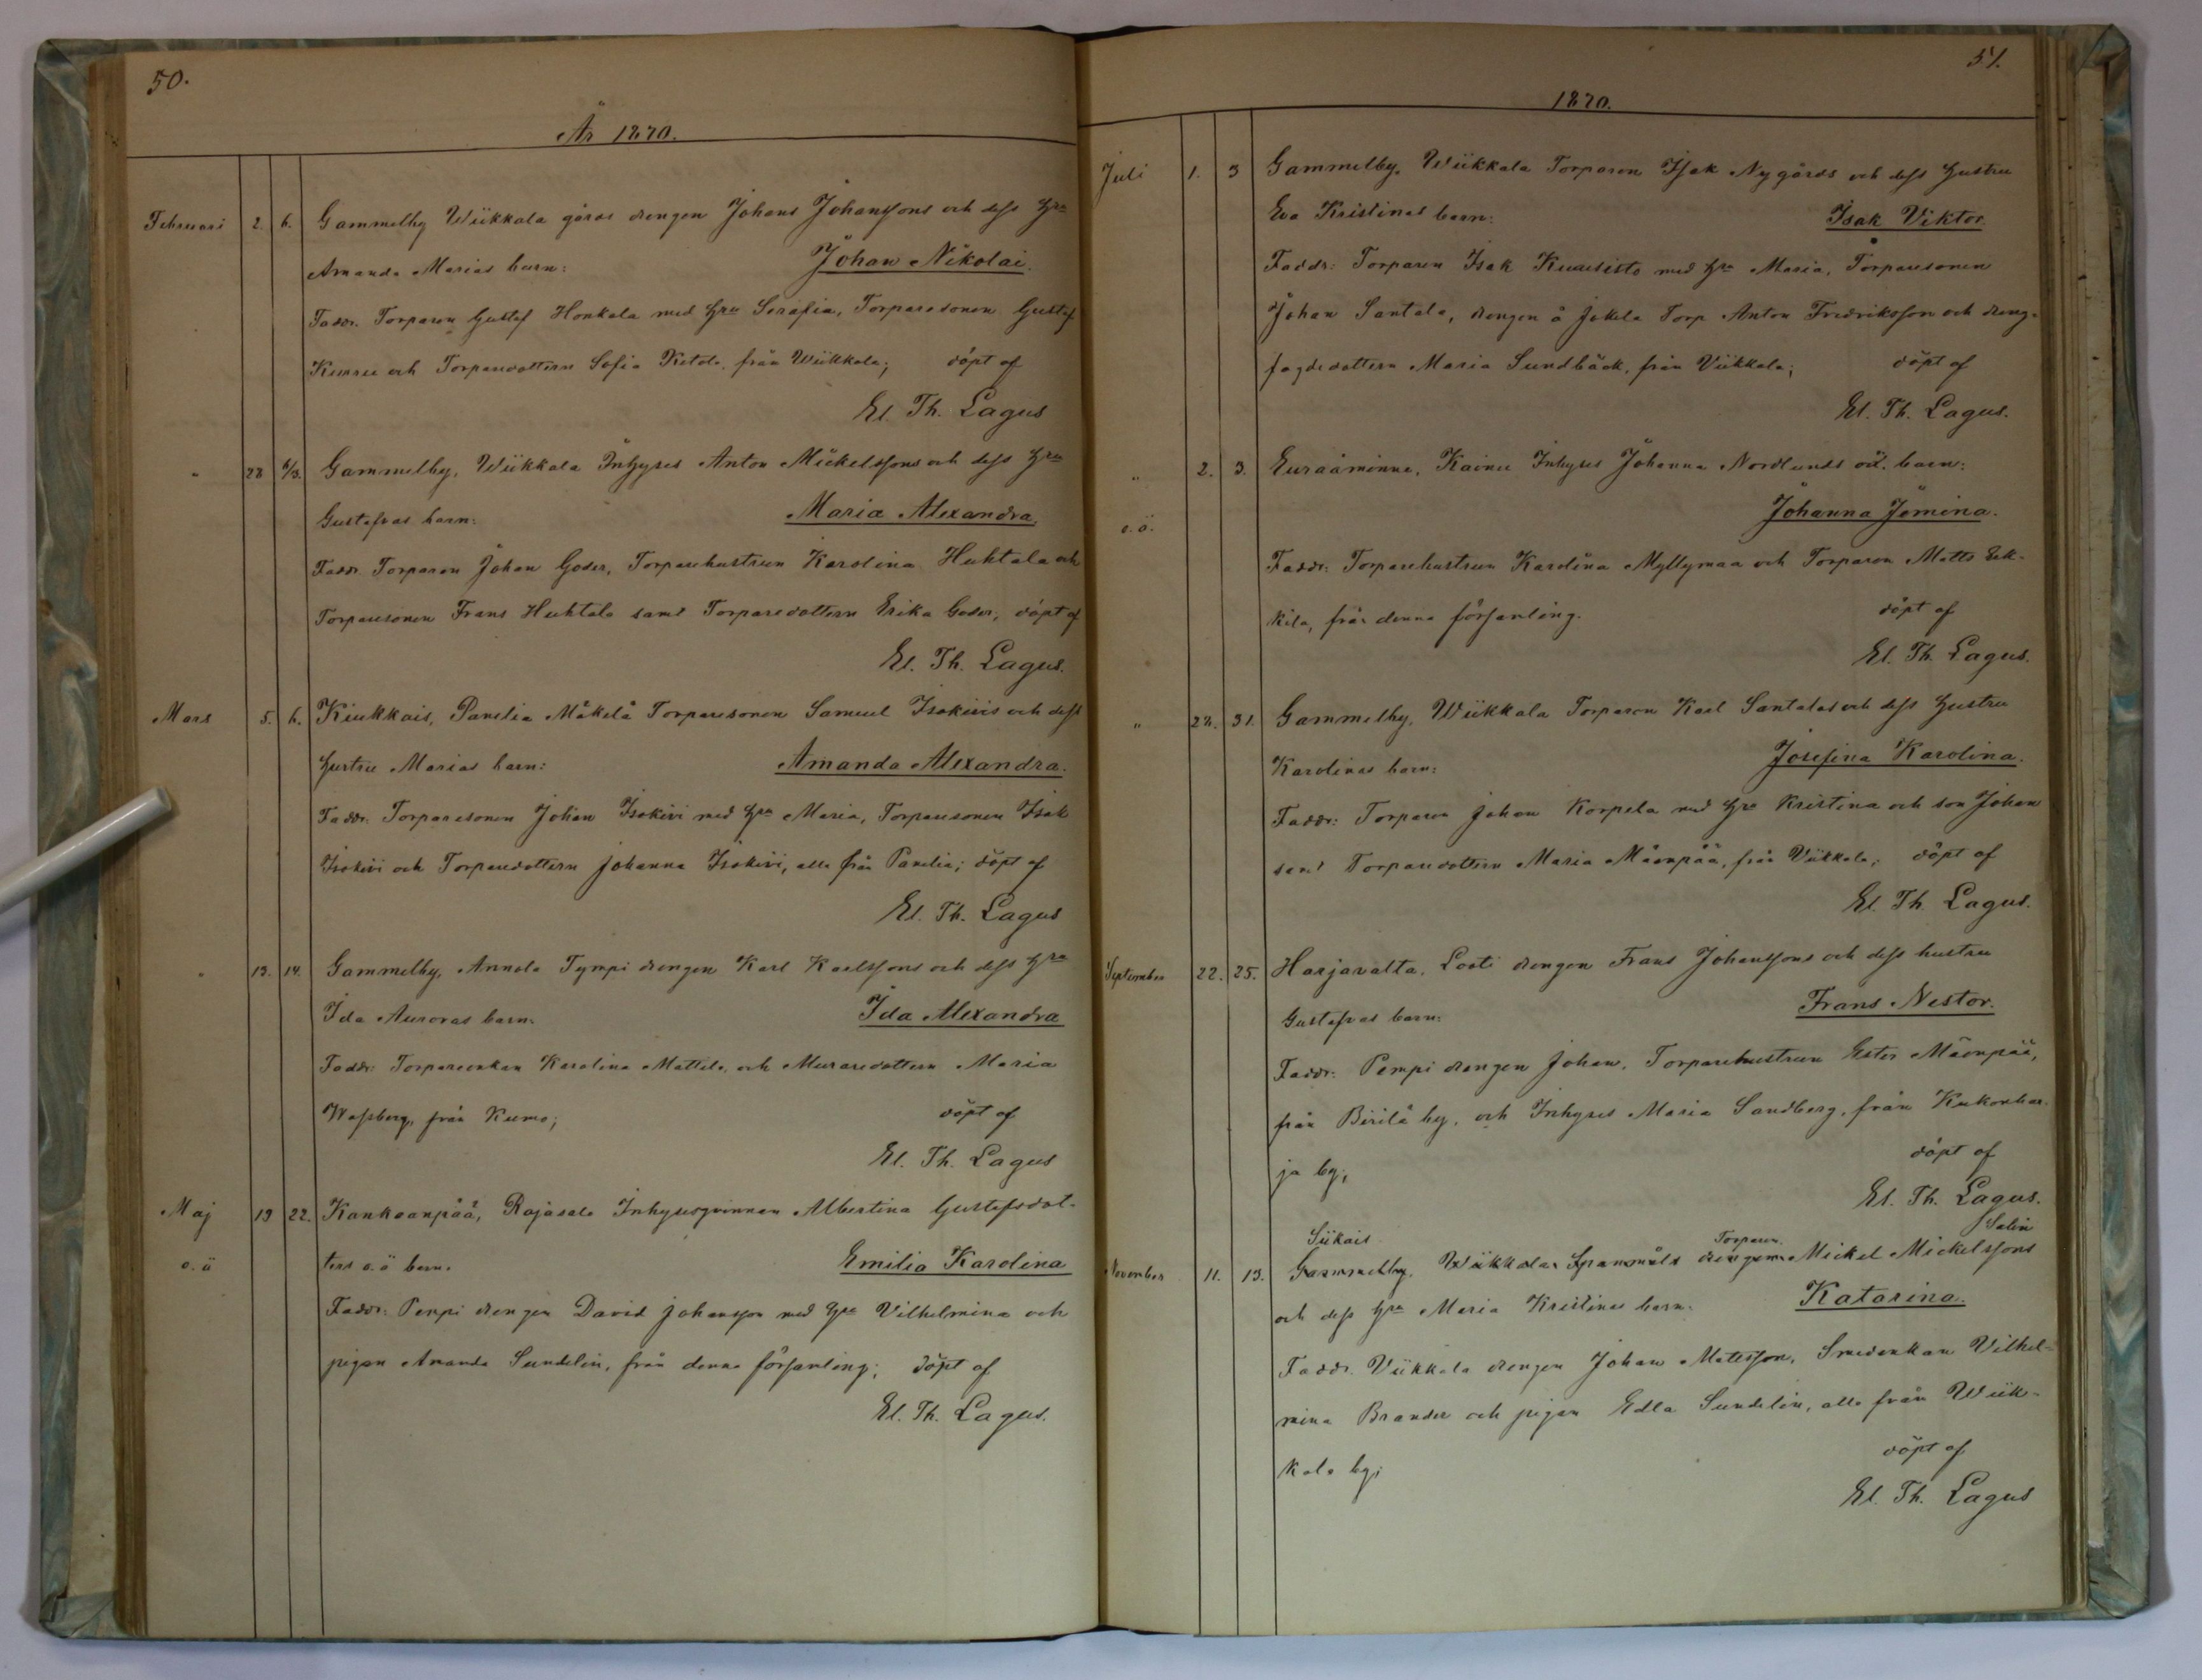 50.
År 1870.
Februari 2. 6. Gammelby Wiikkala gårds drengen Johans Johanssons och dess Hru
Amanda Marias barn: Johan Nikolai.
Faddr. Torparen Gustaf Honkala med Hru Serafia, Torparesonen Gustaf
och Torparedottern Sofia Ketola, från Wiikkala; döpt af
El. Th. Lagus
" 28 6/3. Gammelby, Wiikkala Inhyses Anton Mickelssons och dess Hru
Gustafvas barn: Maria Alexandra.
Faddr. Torparen Johan Goder, Torparehustrun Karolina Huhtala och
Torparesonen Frans Huhtala samt Torparedottern Erika Goder, döpt af
El. Th. Lagus.
Mars 5. 6. Kiukkais, Panelia Mäkelä Torparesonen Samuel Isokivis och dess
Hustru Marias barn: Amanda Alexandra.
Faddr: Torparesonen Johan Isokivi med Hru Maria, Torparesonen Isak
Isokivi och Torparedottern Johanna Isokivi, alla från Panelia; döpt af
El. Th. Lagus
" 13. 14. Gammelby, Annola Tympi drengen Karl Karlssons och dess Hru
Ida Auroras barn: Ida Alexandra
Faddr: Torpareenkan Karolina Mattila, och Muraredottern Maria
Wassberg, från Kumo; döpt af
El. Th. Lagus
Maj 19 22. Kankaanpää, Rajasala Inhysesqvinnan Albertina Gustafsdot-
o. ä ters o. ä barn. Emilia Karolina
Faddr: Pempi drengen David Johansson med Hru Vilhelmina och
pigan Amanda Sundelin, från denna församling; döpt af
El. Th. Lagus.
51.
1870.
Juli 1. 3 Gammelby, Wiikkala Torparen Isak Nygårds och dess Hustru
Eva Kristinas barn: Isak Viktor.
Faddr: Torparen Isak Kuusisto med Hru Maria, Torparesonen
Johan Santala, drengen å Jokela Torp Anton Fredriksson och dreng-
fogdedottern Maria Sundbäck, från Viikkala; döpt af
El. Th. Lagus.
" 2. 3. Euraåminne, Kainu Inhyses Johanna Nordlunds oä. barn:
o. ä. Johanna Jemina.
Faddr: Torparehustrun Karolina Myllymaa och Torparen Matts Eek-
kila, från denna församling. döpt af
El. Th. Lagus.
" 28. 31. Gammelby, Wiikkala Torparen Karl Santalas och dess Hustru
Karolinas barn: Josefina Karolina.
Faddr: Torparen Johan Korpela med Hru Kristina och son Johan
samt Torparedottern Maria Mäenpää, från Viikkala; döpt af
El. Th. Lagus.
September 22. 25. Harjavalta, Looti drengen Frans Johanssons och dess hustru
Gustafvas barn: Frans Nestor.
Faddr: Pempi drengen Johan, Torparehustrun Ester Mäenpää,
från Birilä by, och Inhyses Maria Sandberg, från Kukonhar-
ja by; döpt af
El. Th. Lagus.
Siikais Torparen Salin
November 11. 13. Gammelby. Wiikkala drengen Mickel Mickelssons
och dess Hru Maria Kristinas barn: Katarina.
Faddr. Viikkala drengen Johan Matsson, Smedenkan Vilhel-
mina Brander och pigan Edla Sundelin, alla från Wiik-
kala by; döpt af
El. Th. Lagus